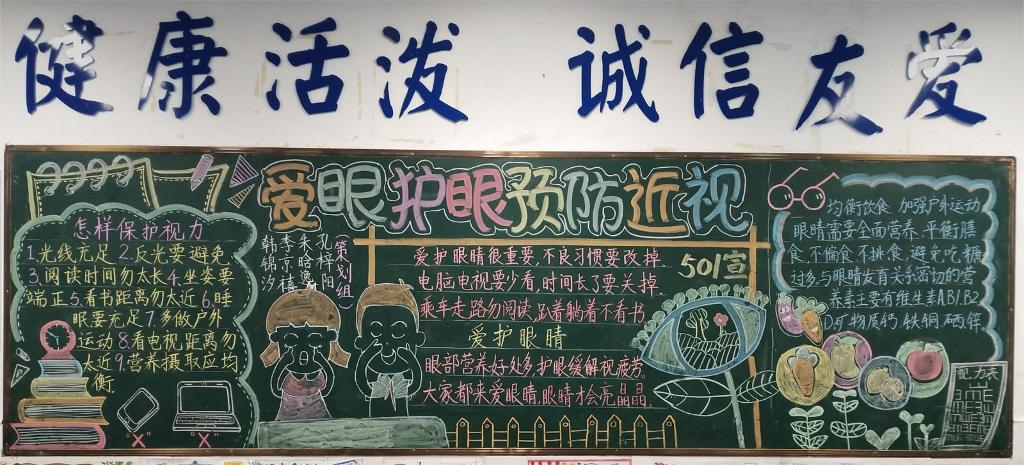 健康活泼 诚信友爱
爱眼护眼预防近视
怎样保护视力
1.光线充足 2.反光要避免
3.阅读时间勿太长 4.坐姿要
端正 5.看书距离勿太近 6.睡
眠要充足 7.多做户外
运动 8.看电视距离勿
太近 9.营养摄取应均
衡
"X" "X"
(策划组
孔梓阳
朱晗逸
李京禧
韩锦汐
爱护眼睛很重要,不良习惯要改掉
电脑电视要少看,时间长了要关掉.
乘车走路勿阅读,趴着躺着不看书
爱护眼睛
眼部营养好处多,护眼缓解视疲劳.
大家都来爱眼睛,眼睛才会亮晶晶
501宣
均衡饮食 加强户外运动
眼睛需要全面营养,平衡膳
食,不偏食不挑食,避免吃糖
过多.与眼睛发育关系密切的营
养素主要有维生素A B1 B2
D.矿物质钙.铁.铜.硒.锌
视力表